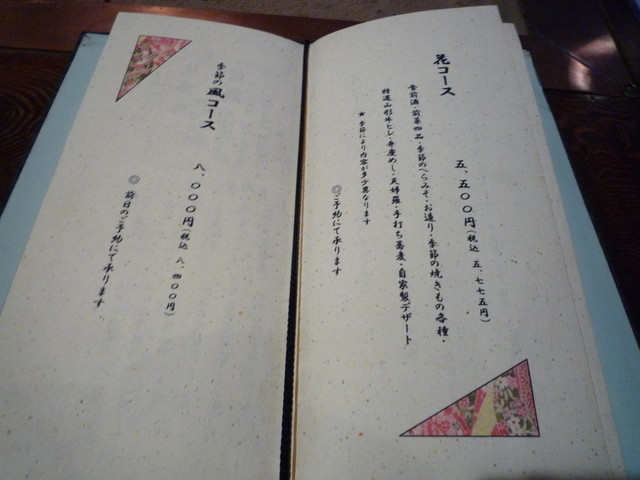 花コース
五、五〇〇円(税込 五、七七五円)
食前酒・前菜四品・季節のへらみそ・お造り・季節の焼きもの各種・
特選山形牛ヒレ・弁慶めし・天婦羅・手打ち蕎麦・自家製デザート
★季節により内容が多少異なります
◎ご予約にて承ります
季節の風コース
八、〇〇〇円(税込 八、四〇〇円)
◎前日のご予約にて承ります